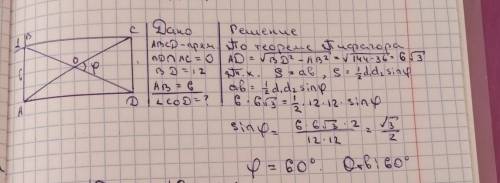 B
C
6
A
D
O φ
Дано
ABCD-прям.
BD∩AC=O
BD=12
AB=6
∠COD=?
Решение
По теореме Пифагора
AD=√BD²-AB²=√144-36=6√3
т.к. S=ab, S=½d₁d₂sinφ
ab=½d₁d₂sinφ
6·6√3=½·12·12·sinφ
sinφ=6·6√3·2/12·12=√3/2
φ=60°. Отв:60°